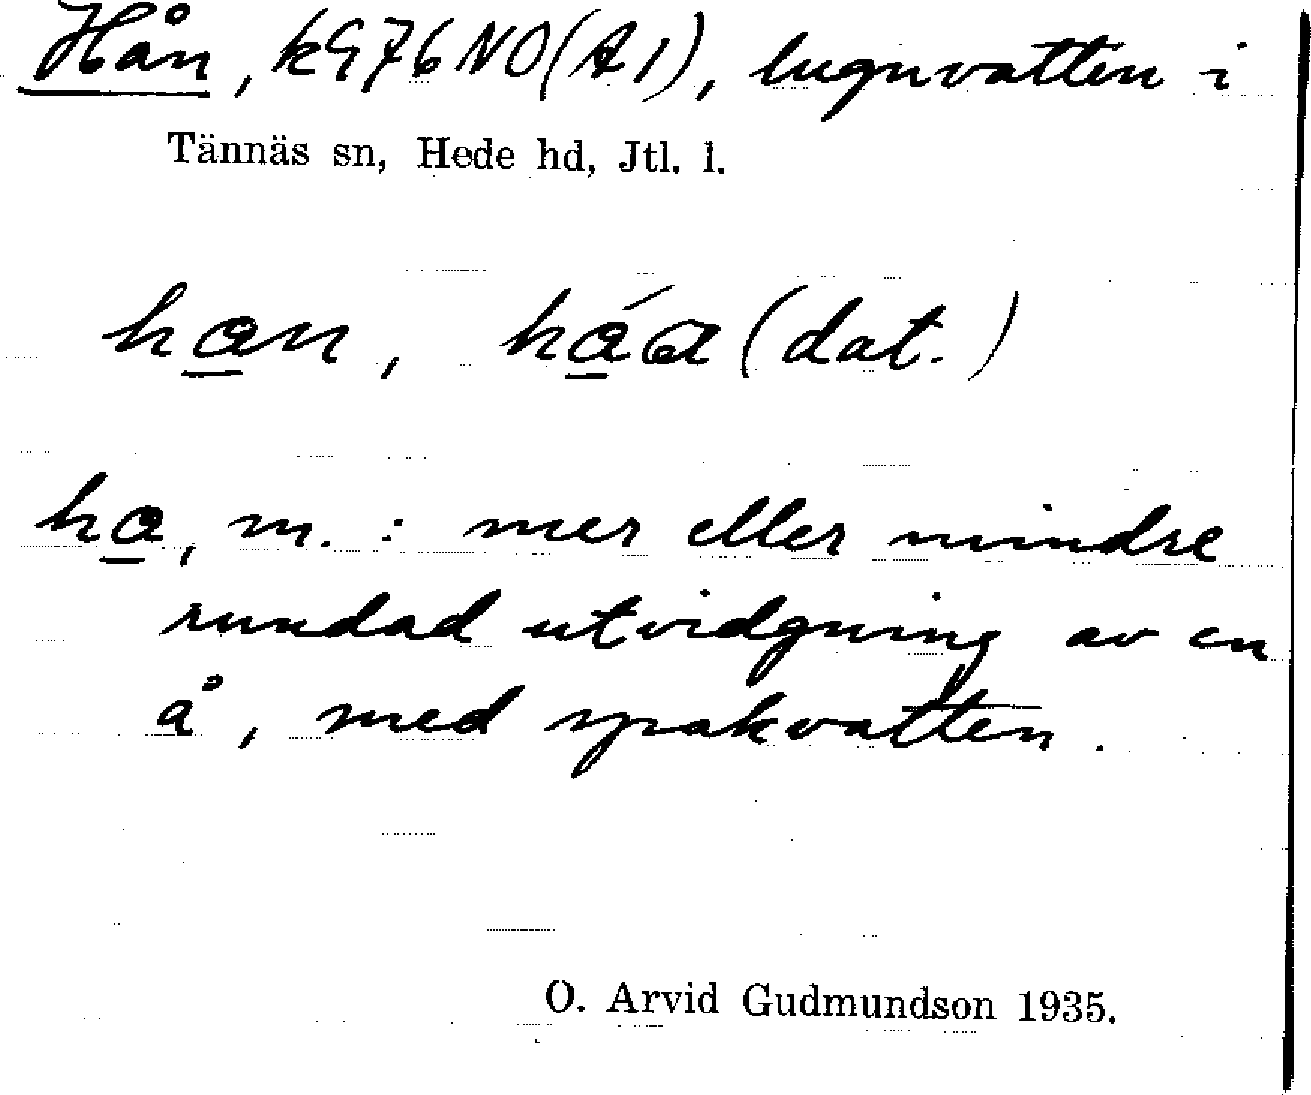 Hån, kG76NO(A1), lugnvatten i
Tännäs sn, Hede hd, Jtl. l.
han, háa (dat.)
ha, m. : mer eller mindre
rundad utvidgning av en
å, med spakvatten.
O. Arvid Gudmundson 1935.